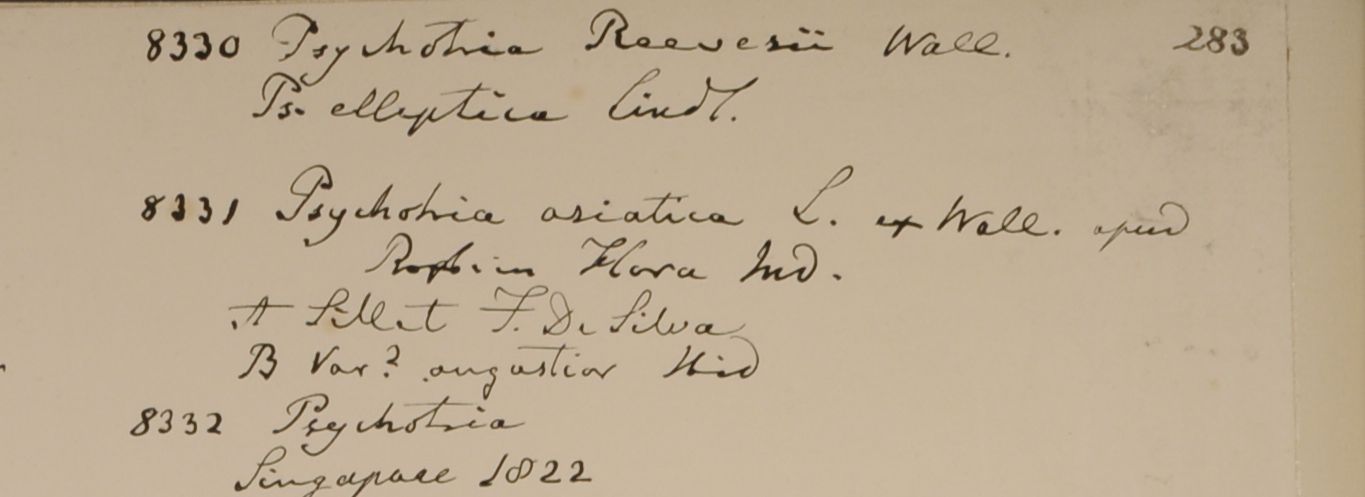 8330 Psychotria Reevesii Wall. 283
Ps. elliptica Lindl.
8331 Psychotria asiatica L. ex Wall. apud
Roxb. in Flora Ind.
A Sillet F. De Silva
B Var? angustior Ibid
8332 Psychotria
Singapore 1822